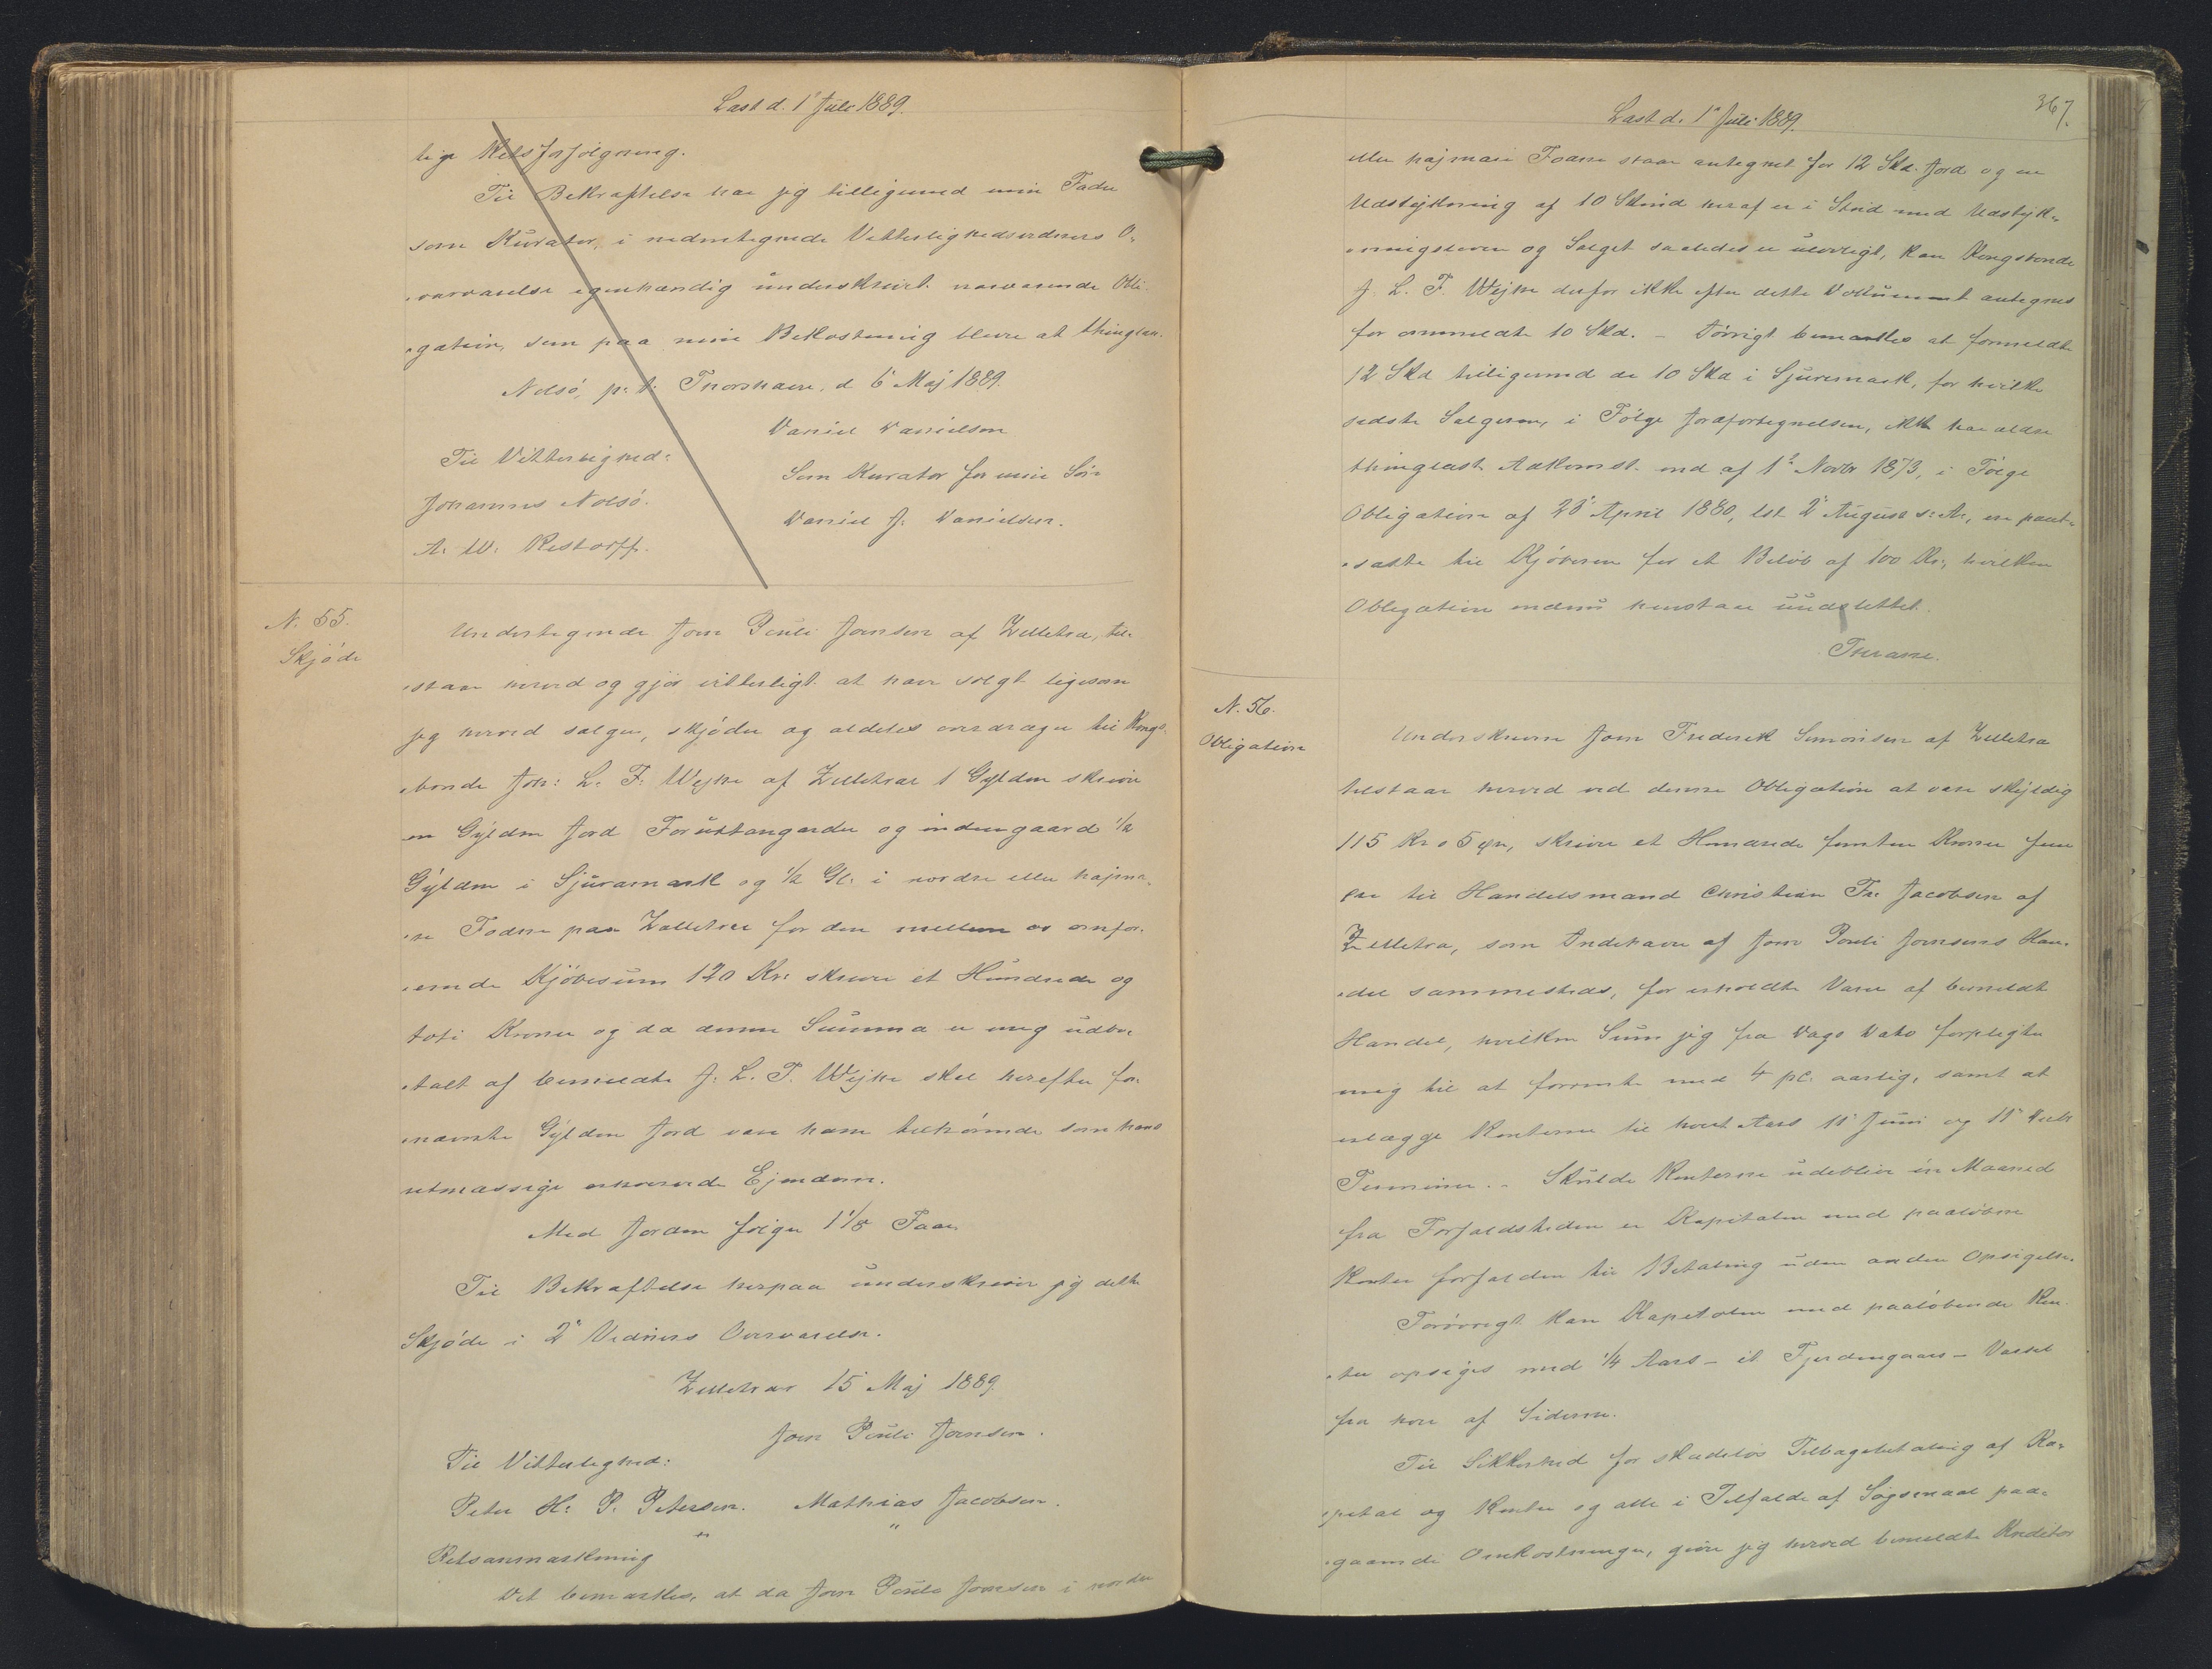 Læst d. 1' Juli 1889.
lige Retsforfølgning.
Til Bekræftelse har jeg tilligemed min Fader
som Kurator, i nedentegnede Vitterlighedsvidners O-
-verværelse egenhændig underskrevet nærværende Obli-
-gation, som paa min Bekostning bliver at thinglæ-
Nolsø, p. t. Thorshavn, d 6' Maj 1889.
Daniel Danielsen
Til Vitterlighed:
Som Kurator for min Søn
Johannes Nolsø.
Daniel J. Danielsen.
A. W. Restorff.
N. 55.
Skjøde
Undertegnede Joen Pouli Joensen af Zelletræ, til-
-staar herved og gjør vitterligt at have solgt ligesom
jeg herved sælger, skjøder og aldeles overdrager til Kongs-
-bonde Joh: L. F. Wejhe af Zelletræ 1 Gylden skriver
en Gylden Jord Foruttangarder og indengaard 1/2
Gylden i Sjuramark og 1/2 Gl. i nordre eller højma-
-re Fodne paa Zelletræ for den mellem os omfor-
-enede Kjøbesum 120 Kr: skriver et Hundrede og
tyve Kroner og da denne Summa er mig udbe-
-talt af bemeldte J. L. F. Wejhe skal herefter for-
-nævnte Gylden Jord være ham tilhørende som hans
retmæssige erhvervede Ejendom.
Med Jorden følger 1 1/8 Faar
Til Bekræftelse herpaa underskriver jeg dette
Skjøde i 2' Vidners Overværelse.
Zelletræ 15' Maj 1889.
Joen Pouli Joensen.
Til Vitterlighed:
Peter H. P. Petersen. Mathias Jacobsen.
Retsanmærkning
Det bemærkes, at da Joen Pouli Joensen i nordre
367.
Læst d. 1' Juli 1889.
eller højmare Fodne staar antegnet for 12 Skd. Jord og en
Udstykning af 10 Skind heraf er i Strid med Udstyk-
-ningsloven og Salget saaledes er ulovligt, kan Kongsbonde
J. L. F. Wejhe derfor ikke efter dette Dokument antegnes
for ommeldte 10 Skd. - Iøvrigt bemærkes at formeldte
12 Skd tilligemed de 10 Skd i Sjuramark, for hvilke
sidste Sælgeren, i Følge Jordfortegnelsen, ikke har ældre
thinglæst Adkomst end af 1' Novbr 1873, i Følge
Obligation af 28' April 1880, lst 2' August s. A., ere pant-
-satte til Kjøberen for et Beløb af 100 Kr:, hvilken
Obligation endnu henstaar uudslettet.
N. 56.
Obligation
Underskrevne Joen Frederik Simonsen af Zelletræ
tilstaar herved ved denne Obligation at være skyldig
115 Kr. 05 Øre, skriver et Hundrede femten Kroner fem
Øre til Handelsmand Christian Fr. Jacobsen af
Zelletræ, som Indehaver af Joen Pouli Joensens Han-
-del sammesteds, for erholdte Varer af bemeldte
Handel, hvilken Sum jeg fra Dags Dato forpligter
mig til at forrente med 4 pC. aarlig, samt at
erlægge Renterne til hvert Aars 11' Juni og 11' Decbr
Terminer. - Skulde Renterne udeblive én Maaned
fra Forfaldstiden er Kapitalen med paaløbne
Renter forfalden til Betaling uden anden Opsigelse.
Forøvrigt kan Kapitalen med paaløbende Ren-
-ter opsiges med 1/4 Aars - et Fjerdingaars - Varsel
fra hver af Siderne.
Til Sikkerhed for skadesløs Tilbagebetaling af Ka-
-pital og Renter og alle i Tilfælde af Søgsmaal paa-
-gaaende Omkostninger, giver jeg herved bemeldte Kreditor